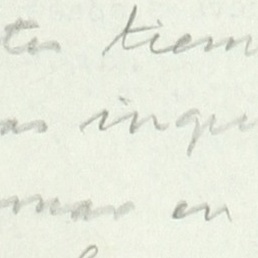 tes tiem
as inqu
mar en